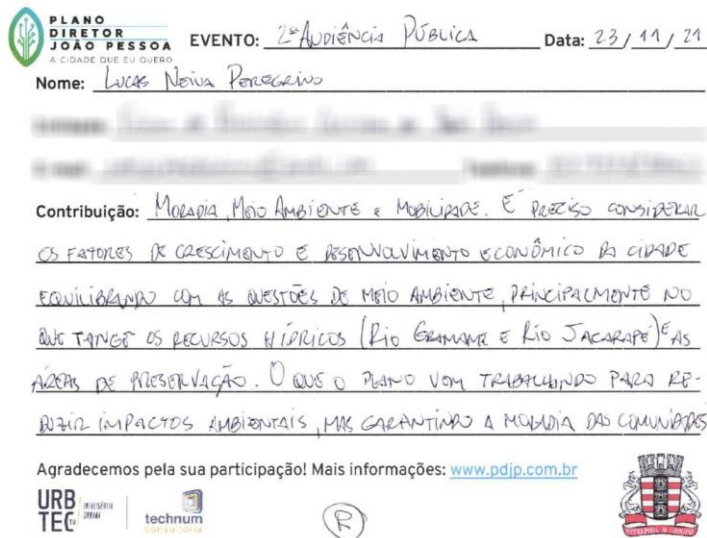 PLANO
DIRETOR
JOÃO PESSOA
A CIDADE QUE EU QUERO
EVENTO: 2ª AUDIÊNCIA PÚBLICA Data: 23/11/21
Nome: LUCAS NEIVA PEREGRINO
Contribuição: MORADIA, MEIO AMBIENTE E MOBILIDADE. É PRECISO CONSIDERAR
OS FATORES DE CRESCIMENTO E DESENVOLVIMENTO ECONÔMICO DA CIDADE
EQUILIBRANDO COM AS QUESTÕES DE MEIO AMBIENTE, PRINCIPALMENTE NO
QUE TANGE OS RECURSOS HÍDRICOS (RIO GRAMAME E RIO JACARAPÉ) E AS
ÁREAS DE PRESERVAÇÃO. O QUE O PLANO VEM TRABALHANDO PARA RE-
DUZIR IMPACTOS AMBIENTAIS, MAS GARANTINDO A MORADIA DAS COMUNIDADES
Agradecemos pela sua participação! Mais informações: www.pdjp.com.br
URB
TEC
technum
R